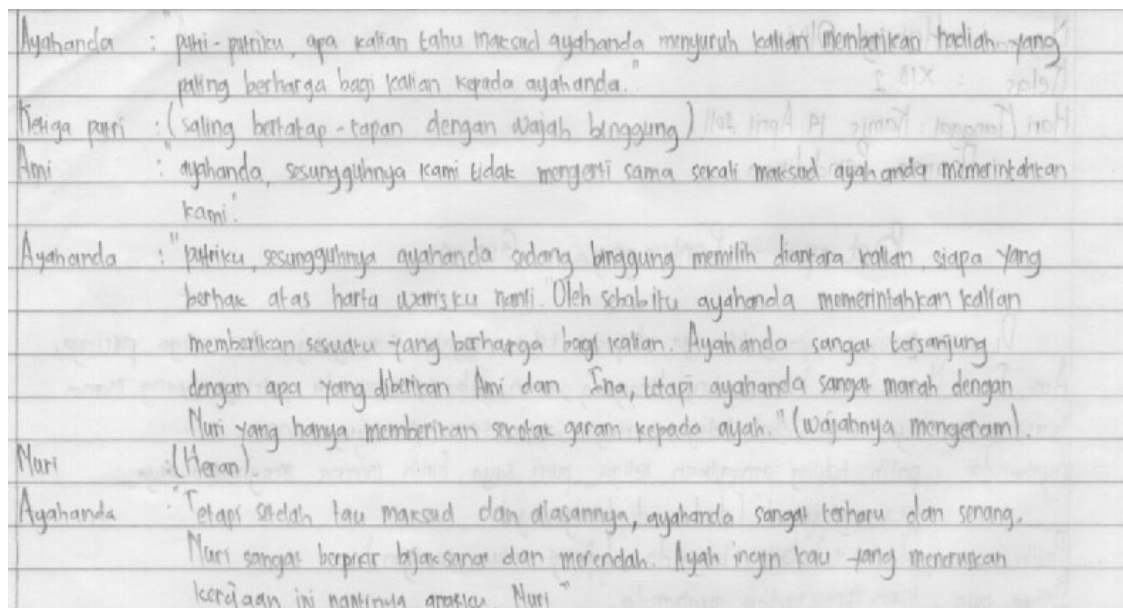 Ayahanda : "putri-putriku, apa kalian tahu maksud ayahanda menyuruh kalian memberikan hadiah yang
paling berharga bagi kalian kepada ayahanda."
Ketiga putri : (saling bertatap-tapan dengan wajah binggung)
Ami : "ayahanda, sesungguhnya kami tidak mengerti sama sekali maksud ayahanda memerintahkan
kami."
Ayahanda : "putriku, sesungguhnya ayahanda sedang binggung memilih diantara kalian, siapa yang
berhak atas harta warisku nanti. Oleh sebab itu ayahanda memerintahkan kalian
memberikan sesuatu yang berharga bagi kalian. Ayahanda sangat tersanjung
dengan apa yang diberikan Ami dan Ina, tetapi ayahanda sangat marah dengan
Nuri yang hanya memberikan sekotak garam kepada ayah." (wajahnya mengeram).
Nuri : (Heran).
Ayahanda : "Tetapi setelah tau maksud dan alasannya, ayahanda sangat terharu dan senang.
Nuri sangat berpikir bijaksana dan merendah. Ayah ingin kau yang meneruskan
kerajaan ini nantinya anakku, Nuri"